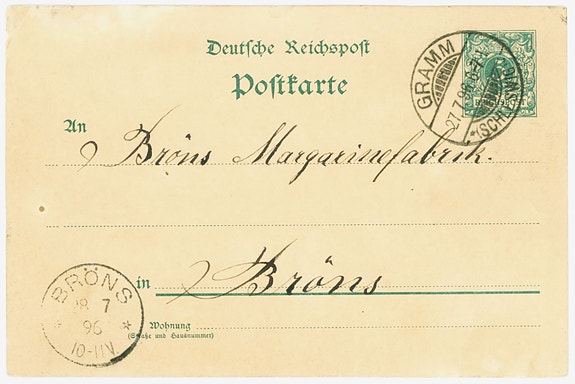 Deutsche Reichspost
Postkarte
GRAMM
27.7.96
*(SCHL
An
Bröns Margarinefabrik.
in Bröns
BRÖNS
8 7
96
10-11V
Wohnung
(Straße und Hausnummer)